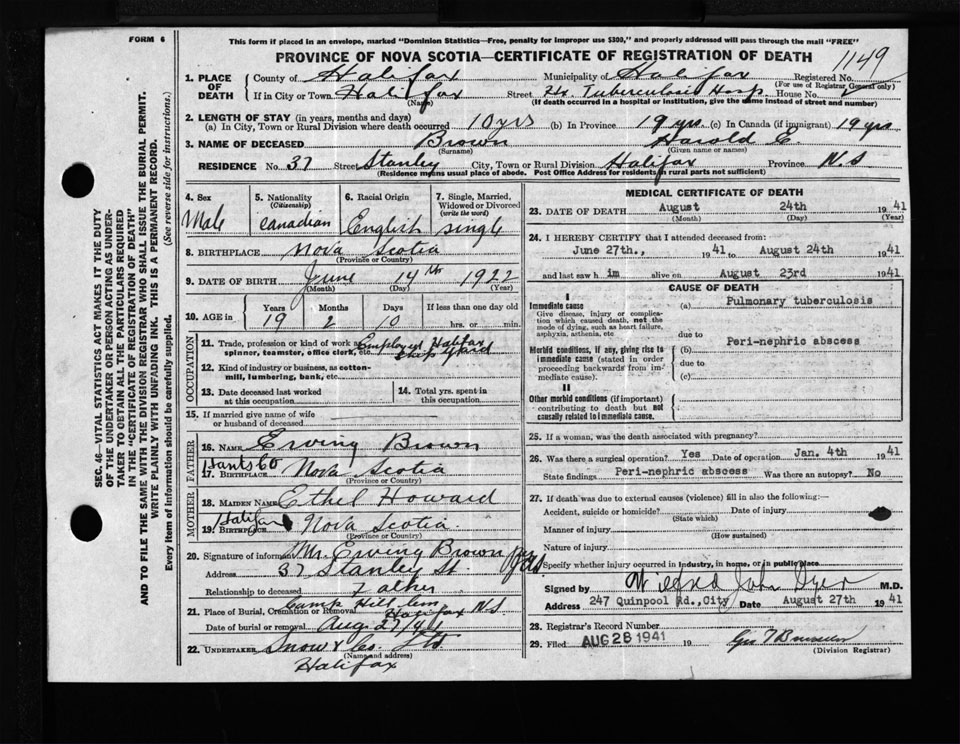 FORM 6
This form if placed in an envelope, marked "Dominion Statistics—Free, penalty for improper use $300," and properly addressed will pass through the mail "FREE"
PROVINCE OF NOVA SCOTIA—CERTIFICATE OF REGISTRATION OF DEATH
1149
1. PLACE OF DEATH
County of Halifax Municipality of Halifax Registered No.
(For use of Registrar General only)
If in City or Town Halifax Street Hx. Tuberculosis Hosp. House No.
(Name) (If death occurred in a hospital or institution, give the name instead of street and number)
2. LENGTH OF STAY (in years, months and days)
(a) In City, Town or Rural Division where death occurred 10 yrs (b) In Province 19 yrs. (c) In Canada (if immigrant) 19 yrs
3. NAME OF DECEASED Brown Harold E.
(Surname) (Given name or names)
RESIDENCE No. 37 Street Stanley City, Town or Rural Division Halifax Province N.S
(Residence means usual place of abode. Post Office Address for residents in rural parts not sufficient)
4. Sex Male
5. Nationality (Citizenship) Canadian
6. Racial Origin English
7. Single, Married, Widowed or Divorced (write the word) Single
8. BIRTHPLACE Nova Scotia
(Province or Country)
9. DATE OF BIRTH June 14th 1922
(Month) (Day) (Year)
10. AGE in Years 19 Months 2 Days 10 If less than one day old hrs. or min.
OCCUPATION
11. Trade, profession or kind of work as spinner, teamster, office clerk, etc. Employed Halifax Ship Yard
12. Kind of industry or business, as cotton-mill, lumbering, bank, etc.
13. Date deceased last worked at this occupation
14. Total yrs. spent in this occupation
15. If married give name of wife or husband of deceased
FATHER
16. NAME Erving Brown
17. BIRTHPLACE Hants Co Nova Scotia
(Province or Country)
MOTHER
18. MAIDEN NAME Ethel Howard
19. BIRTHPLACE Halifax Nova Scotia
(Province or Country)
20. Signature of informant Mr. Erving Brown
Address 37 Stanley St.
Relationship to deceased Father
21. Place of Burial, Cremation or Removal Camp Hill Cem Halifax N.S
Date of burial or removal Aug 27/41
22. UNDERTAKER Snow & Co. Ltd
(Name and address)
Halifax
MEDICAL CERTIFICATE OF DEATH
23. DATE OF DEATH August 24th 1941
(Month) (Day) (Year)
24. I HEREBY CERTIFY that I attended deceased from:
June 27th., 1941 to August 24th 1941
and last saw him alive on August 23rd 1941
CAUSE OF DEATH
I
Immediate cause
Give disease, injury or complication which caused death, not the mode of dying, such as heart failure, asphyxia, asthenia, etc
(a) Pulmonary tuberculosis
due to
Morbid conditions, if any, giving rise to immediate cause (stated in order proceeding backwards from immediate cause).
(b) Peri-nephric abscess
due to
(c)
II
Other morbid conditions (if important) contributing to death but not causally related to immediate cause.
25. If a woman, was the death associated with pregnancy?
26. Was there a surgical operation? Yes Date of operation Jan. 4th 1941
State findings Peri-nephric abscess Was there an autopsy? No
27. If death was due to external causes (violence) fill in also the following:—
Accident, suicide or homicide? Date of injury
(State which)
Manner of injury
(How sustained)
Nature of injury
Specify whether injury occurred in Industry, in home, or in public place
Signed by Wilfred John Dyer M.D.
Address 247 Quinpool Rd., City Date August 27th 1941
28. Registrar's Record Number
29. Filed AUG 28 1941 19
(Division Registrar)
SEC. 46—VITAL STATISTICS ACT MAKES IT THE DUTY OF THE UNDERTAKER OR PERSON ACTING AS UNDERTAKER TO OBTAIN ALL THE PARTICULARS REQUIRED IN THE "CERTIFICATE OF REGISTRATION OF DEATH"
AND TO FILE THE SAME WITH THE DIVISION REGISTRAR WHO SHALL ISSUE THE BURIAL PERMIT.
WRITE PLAINLY WITH UNFADING INK. THIS IS A PERMANENT RECORD.
Every item of information should be carefully supplied. (See reverse side for instructions.)